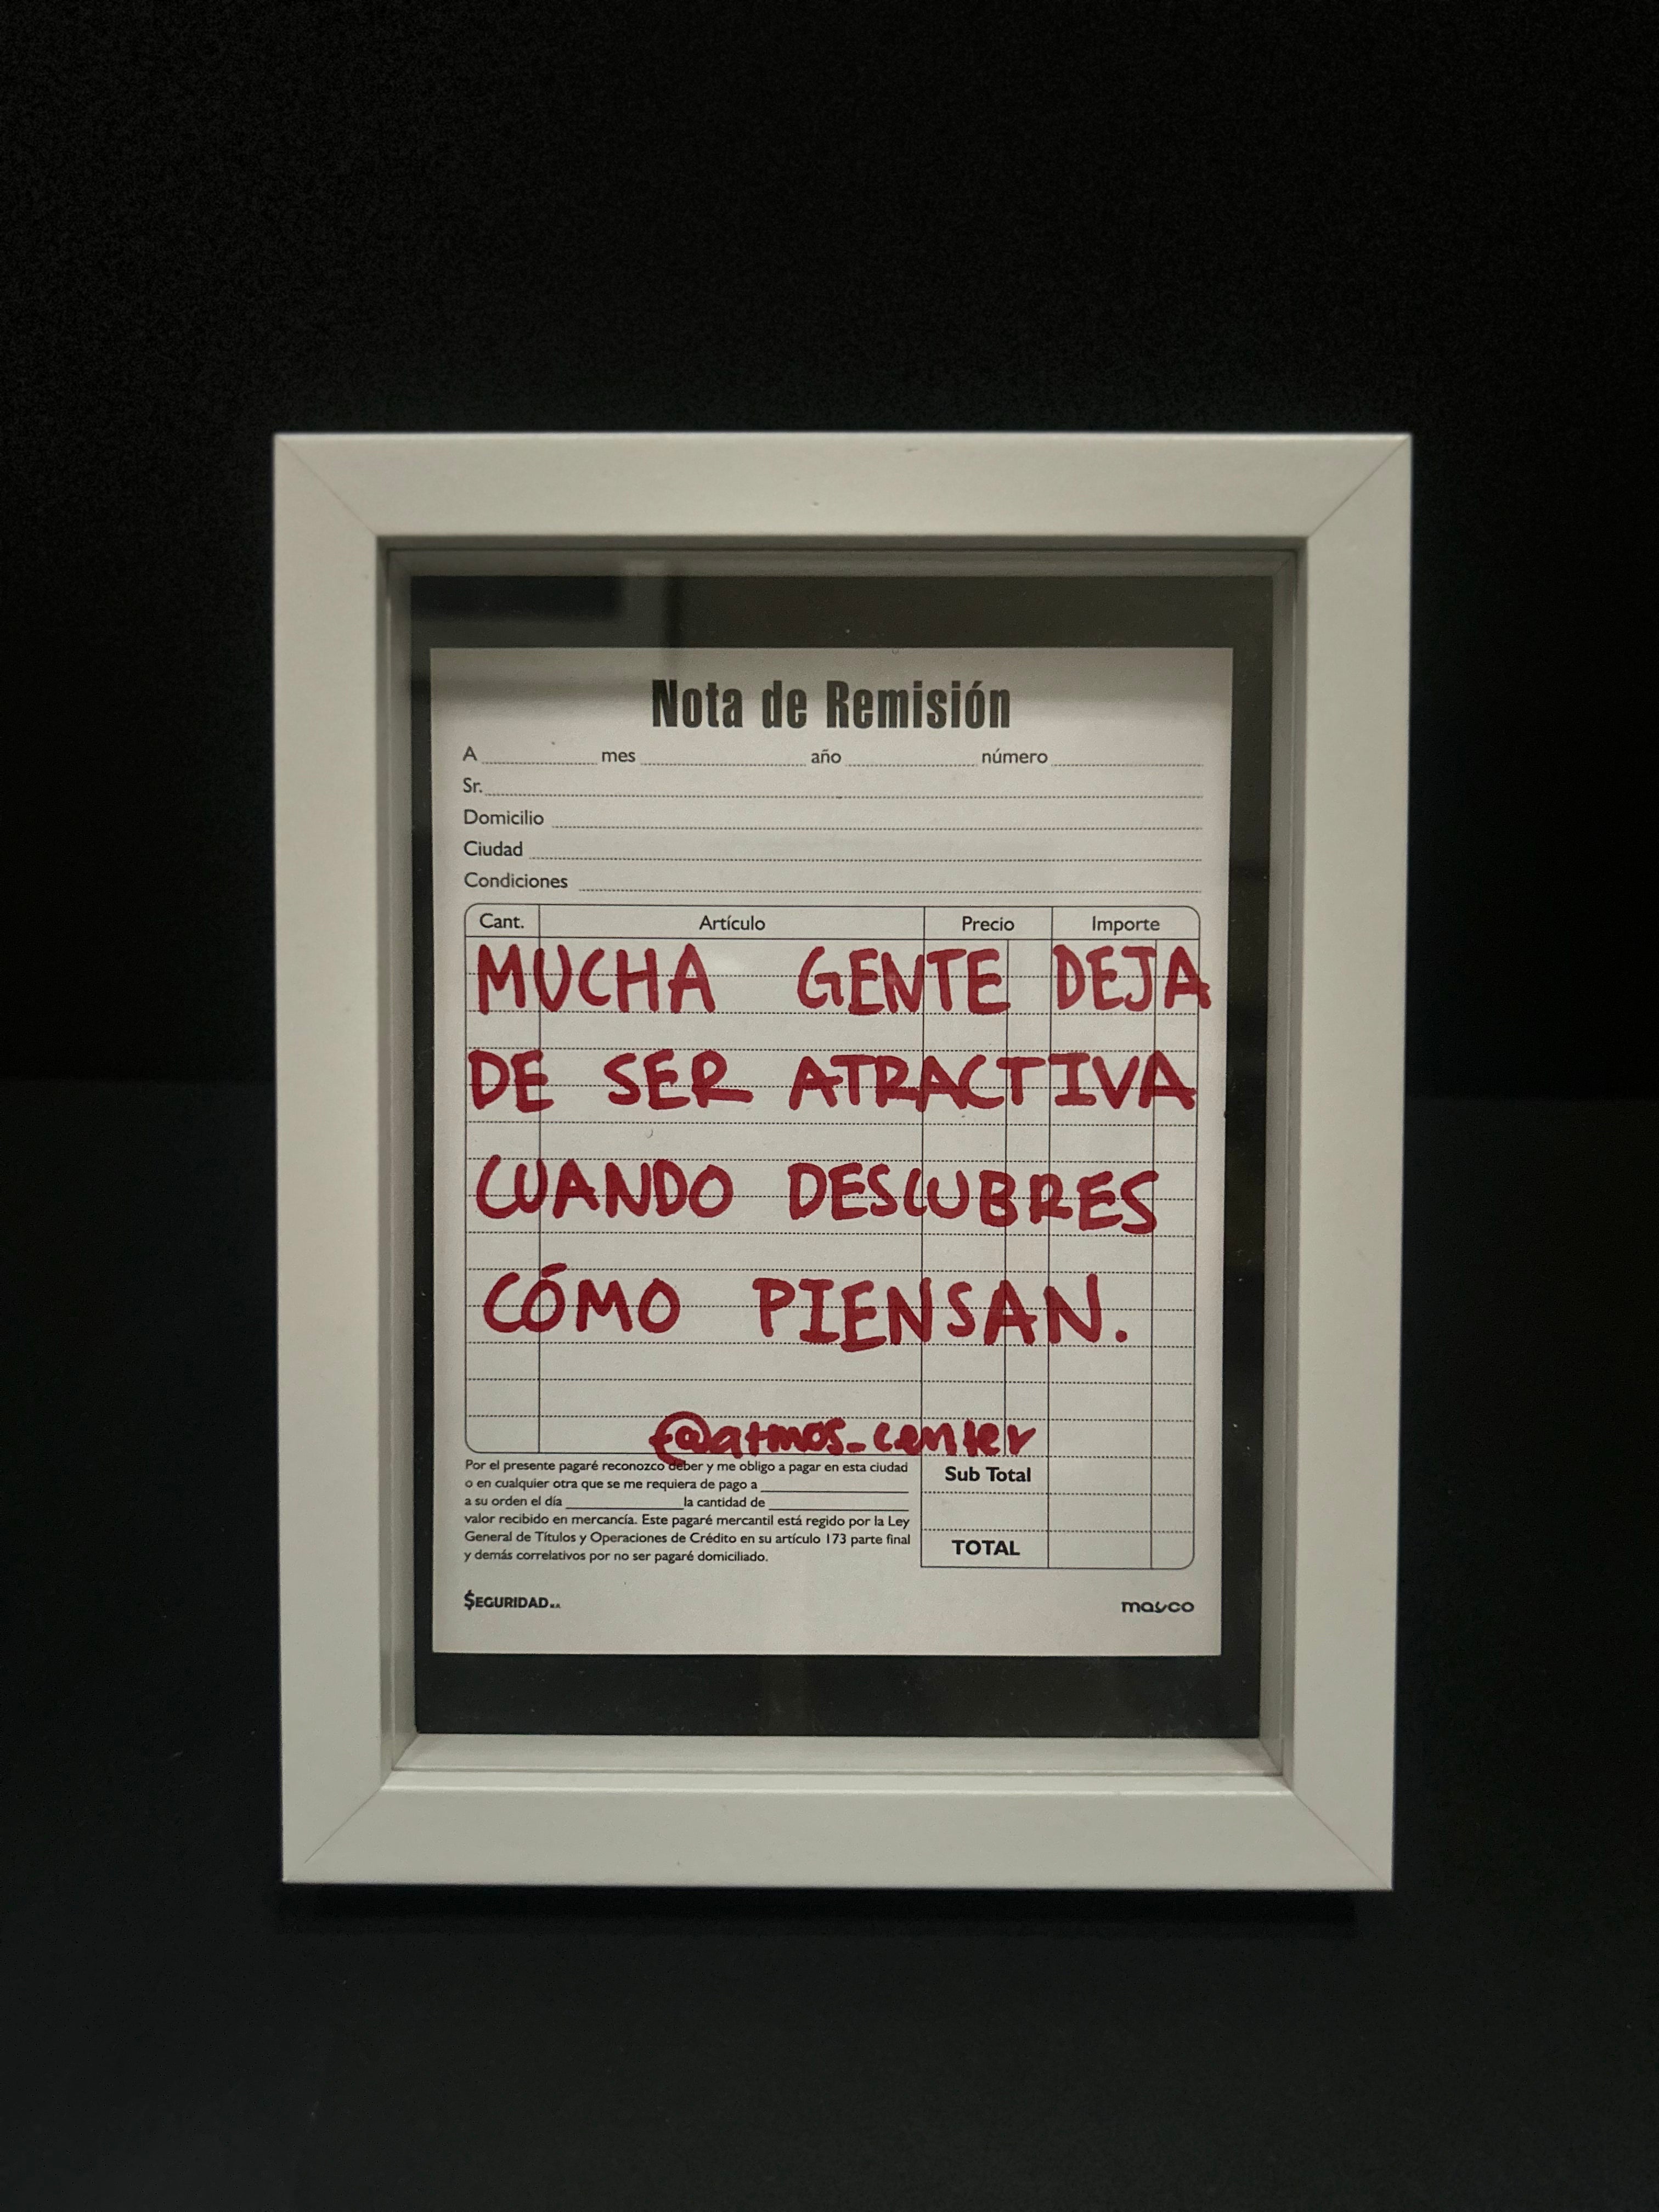 Nota de Remisión
A mes año número
Sr.
Domicilio
Ciudad
Condiciones
Cant. Artículo Precio Importe
MUCHA GENTE DEJA
DE SER ATRACTIVA
CUANDO DESCUBRES
CÓMO PIENSAN.
@atmos_center
Por el presente pagaré reconozco deber y me obligo a pagar en esta ciudad
o en cualquier otra que se me requiera de pago a
a su orden el día la cantidad de
valor recibido en mercancía. Este pagaré mercantil está regido por la Ley
General de Títulos y Operaciones de Crédito en su artículo 173 parte final
y demás correlativos por no ser pagaré domiciliado.
Sub Total
TOTAL
$EGURIDAD
mayco